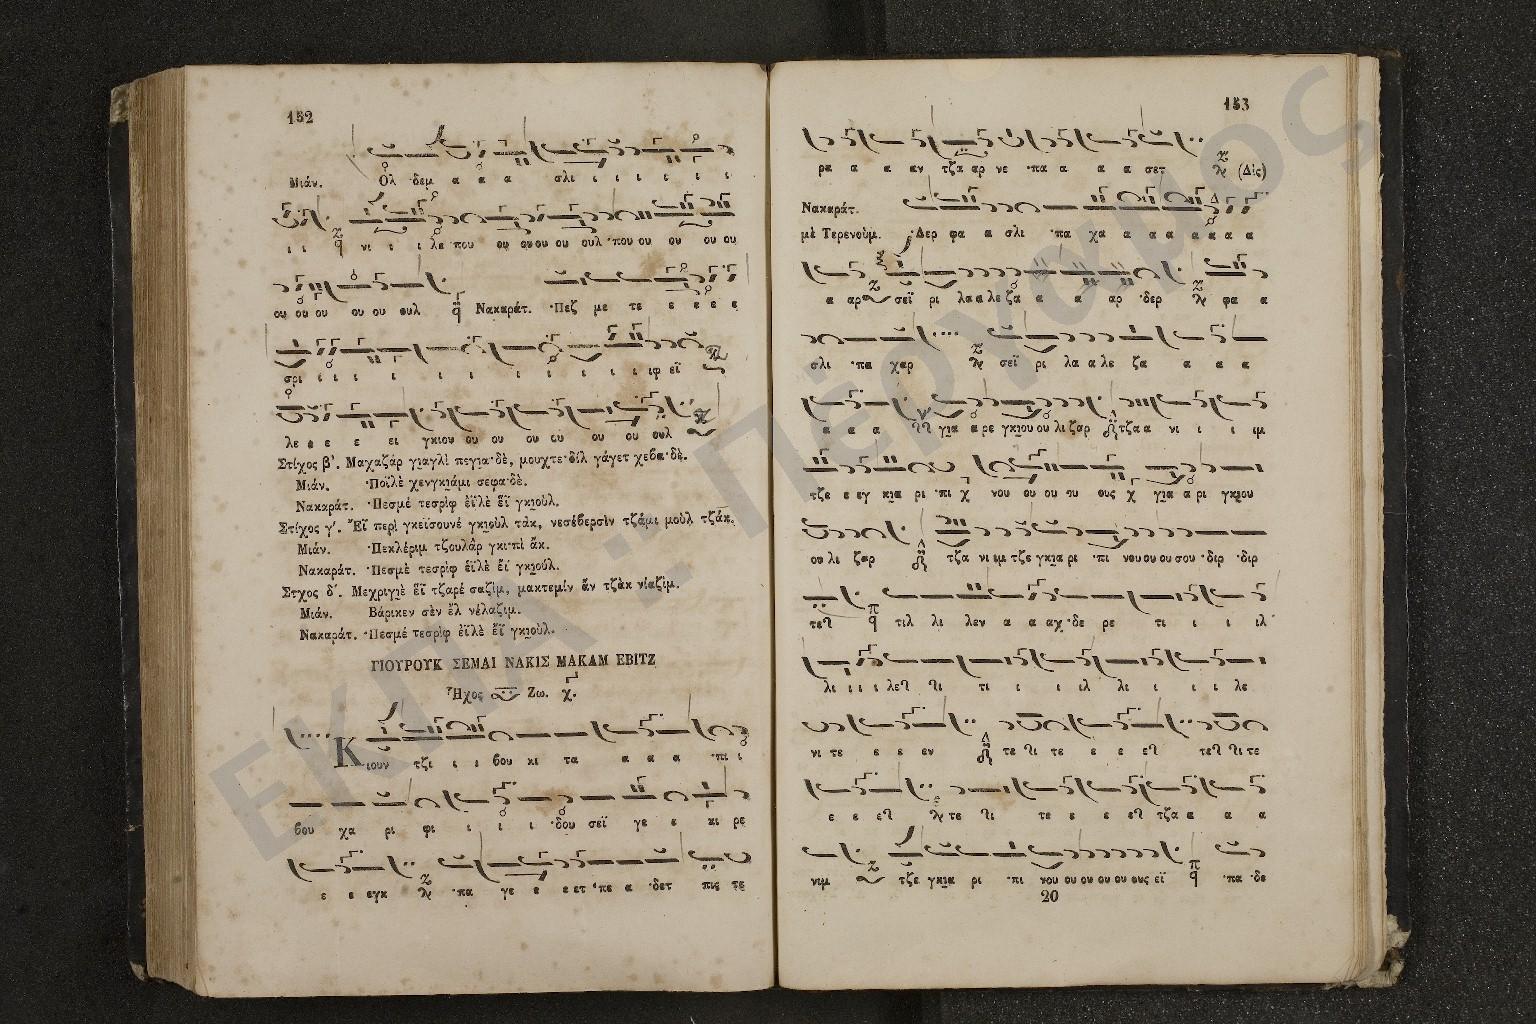 152
Μιάν. Ὀλ ·δεμ α α α σλι ι ι ι ι ι ι
ι ι νι ι ι λε ·που ου ουου ου ουλ ·που ου ου ου ου
ου ου ου ου ου ουλ Νακαράτ. ·Πεζ με τε ε ε ε ε
σρι ι ι ι ι ι ι ι ι ι ιφ εϊ
λε ε ε ε ει γκιου ου ου ου ου ου ου ουλ
Στίχος β'. Μαχαζάρ γιαγλὶ πεγια·δὲ, μουχτε·δὶλ γάγετ χεβα·δὲ.
Μιάν. ·Ποϊλὲ χενγκιάμι σεφα·δὲ.
Νακαράτ. ·Πεσμέ τεσρὶφ ἐϊλὲ ἒϊ γκιοὺλ.
Στίχος γ'. Ἒϊ περὶ γκεϊσουνέ γκιοὺλ τὰκ, νεσέβερσὶν τζάμι μοὺλ τζάκ.
Μιάν. ·Πεκλέριμ τζουλὰρ γκι·πὶ ἄκ.
Νακαράτ. ·Πεσμὲ τεσρὶφ ἐϊλὲ ἒϊ γκιοὺλ.
Στχος δ'. Μεχριγιὲ ἒϊ τζαρέ σαζὶμ, μακτεμίν ἄν τζὰκ νίαζὶμ.
Μιάν. Βάρικεν σὲν ἒλ νέλαζιμ.
Νακαράτ. ·Πεσμέ τεσρὶφ ἐϊλὲ ἒϊ γκιοὺλ.
ΓΙΟΥΡΟΥΚ ΣΕΜΑΙ ΝΑΚΙΣ ΜΑΚΑΜ ΕΒΙΤΖ
Ἦχος Ζω.
Κιουν τζι ι ι βου κι τα α α α ·πι ι
βου χα ρι φι ι ι ι ·δου σεϊ γε ε κι ρε
ε ε εγκ ·πα γε ε ε ετ ·πε α ·δετ πις τε
153
ρα α α αν τζα αρ νε ·πα α α α σετ (Δὶς)
Νακαράτ.
μὲ Τερενοὺμ. ·Δερ φα α σλι ·πα χα α α α α α α α
α αρ σεϊ ρι λα α λε ζα α α αρ ·δερ φα α
σλι ·πα χαρ σεϊ ρι λα α λε ζα α α α
α α α για α ρε γκιου ου λι ζαρ τζα α νι ι ι ιμ
τζε ε εγ κια ρι ·πι νου ου ου ου ους για α ρι γκιου
ου λι ζαρ τζα νι ιμ τζε γκια ρι ·πι νου ου ου σου ·διρ ·διρ
τιλ λι λεν α α αχ ·δε ρε τι ι ι ιλ
λι ι ι ι τι ι ι ιλ λι ι ι ι λε
νι τε ε ε εν τε τε ε ε τε
ε ε τε τε ε ε τζα α α α
νιμ τζε γκια ρι ·πι νου ου ου ου ου ους εϊ ·πα ·δε
20